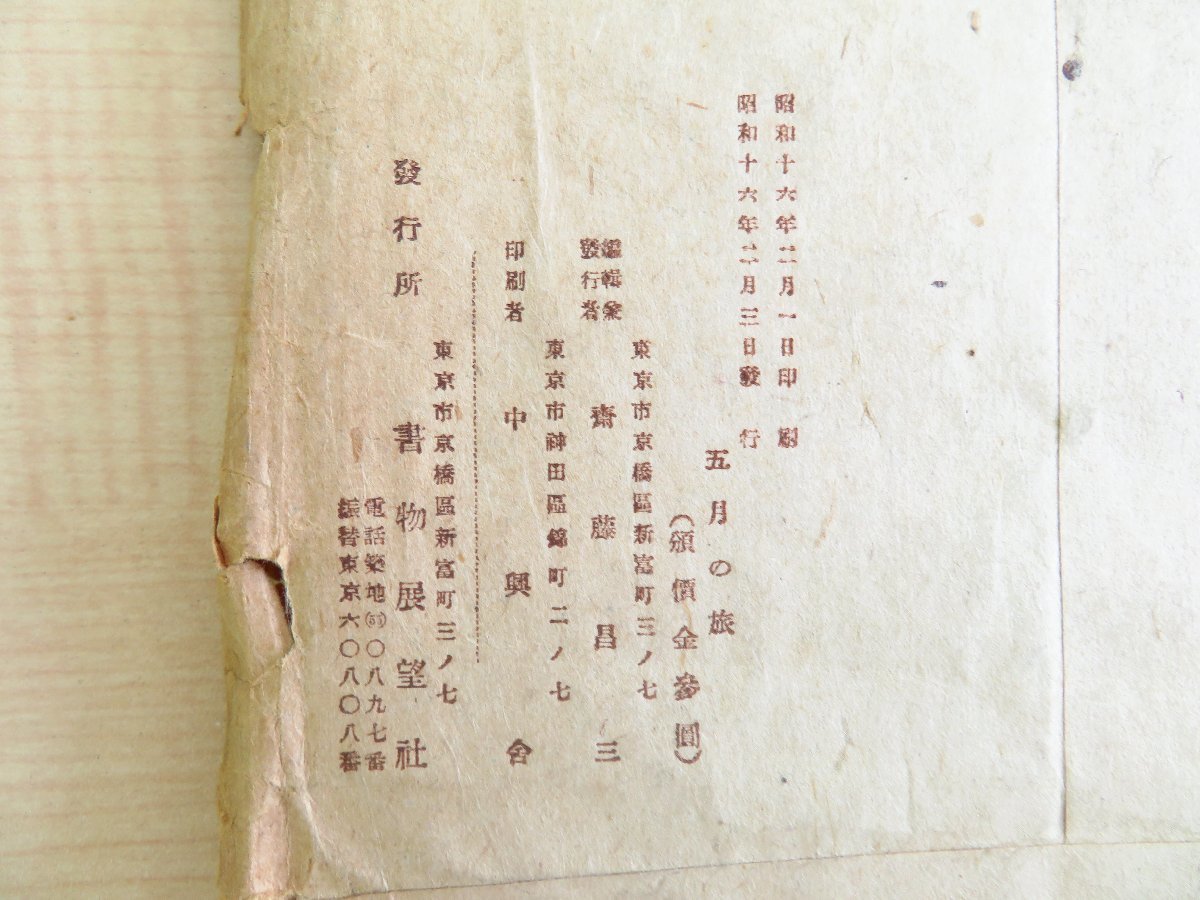 昭和十六年二月一日印刷
昭和十六年二月三日發行
五月の旅
(頒價金參圓)
東京市京橋區新富町三ノ七
編輯兼
發行者
齋藤昌三
東京市神田區錦町二ノ七
印刷者 中興舍
東京市京橋區新富町三ノ七
發行所 書物展望社
電話築地〇八九七番
振替東京六〇八〇八番